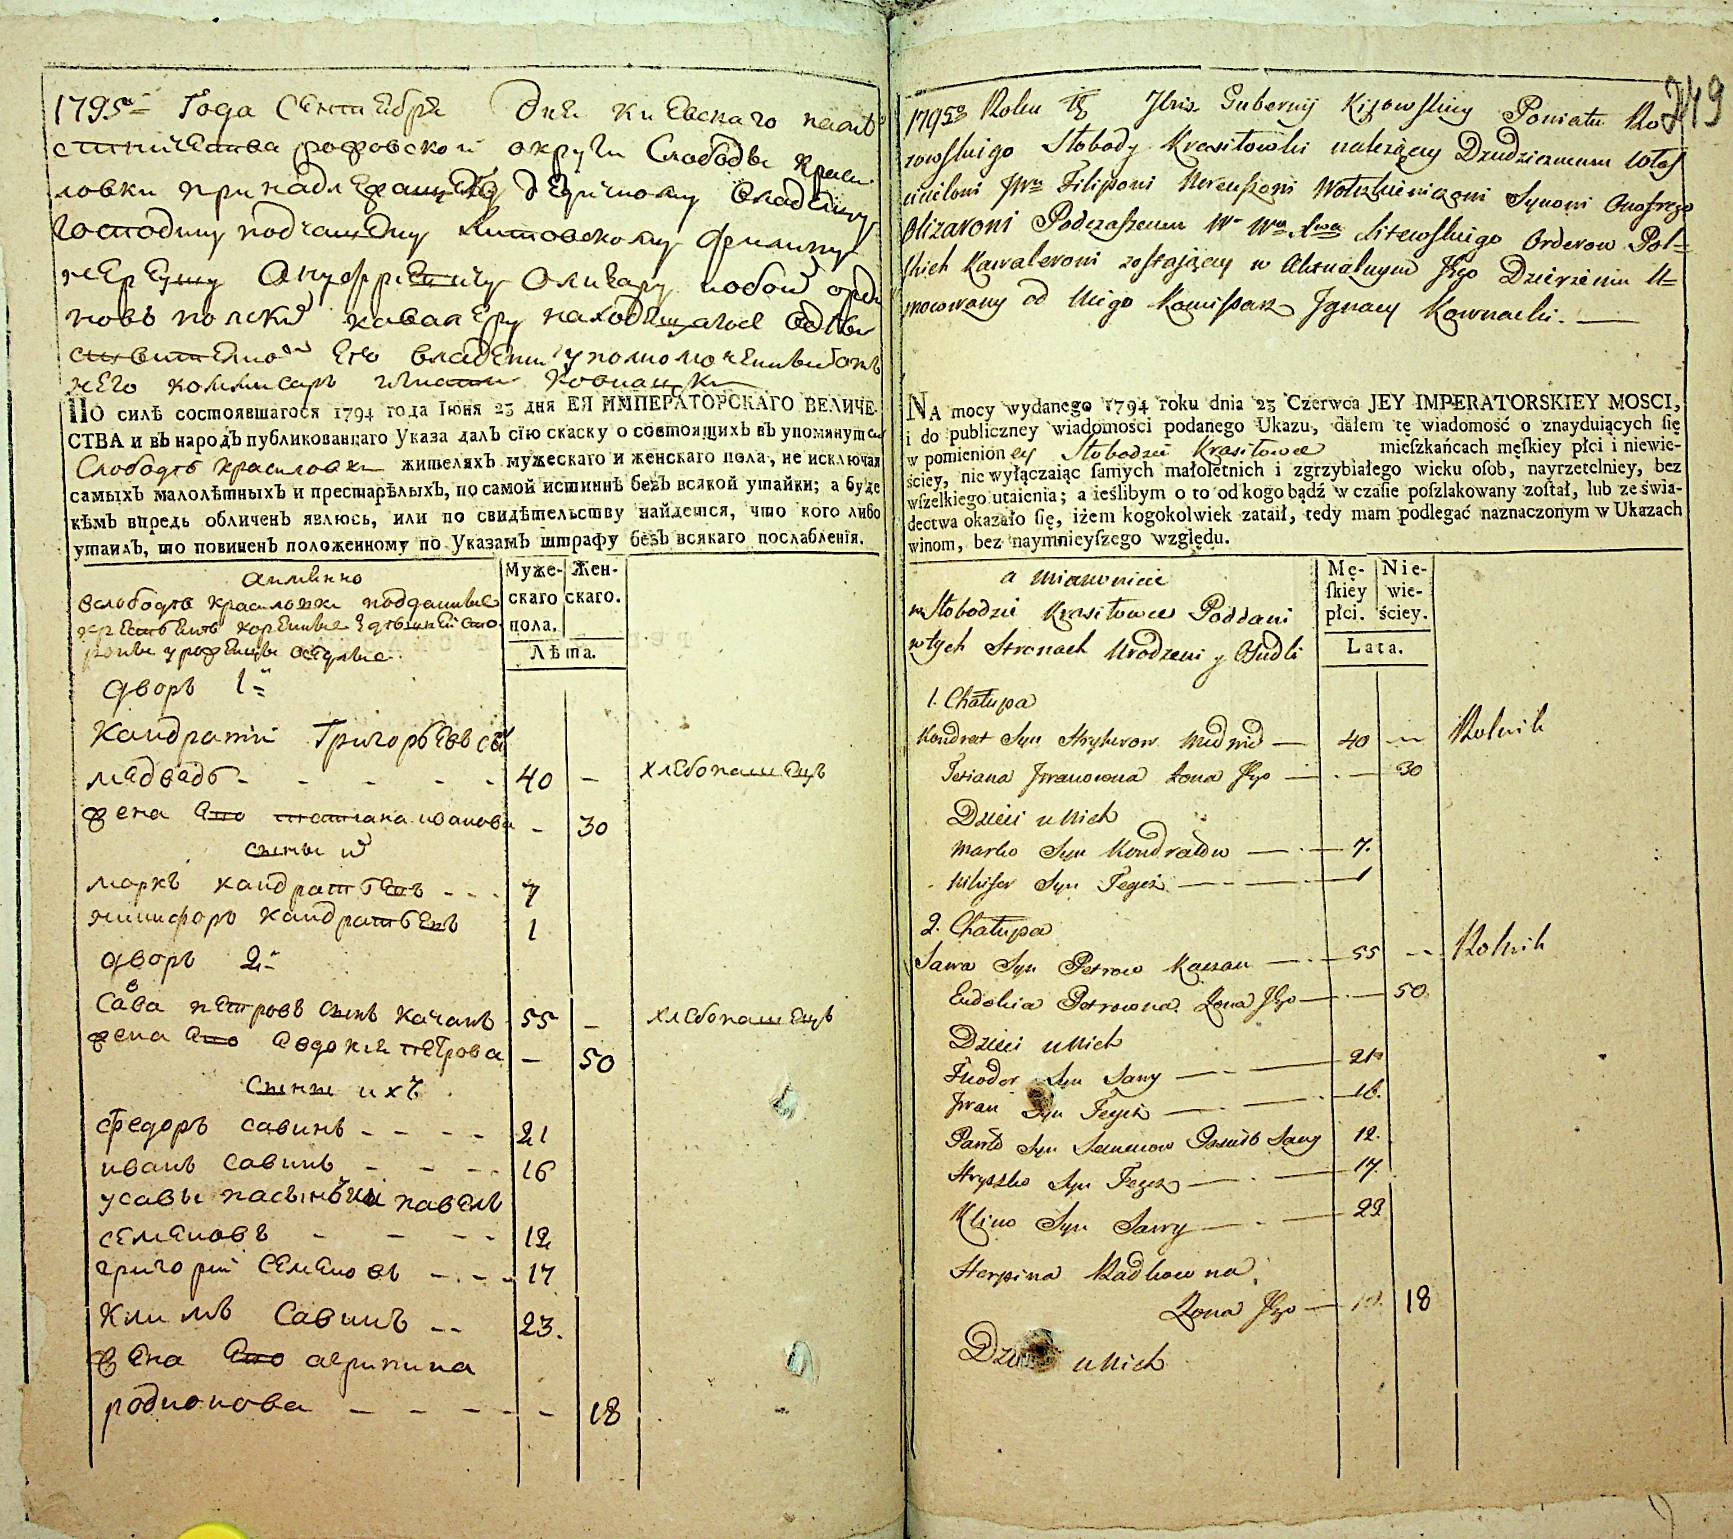 1795го Года Сентебря Дня Киевскаго намѣ
стничества рофовской округи Слободы краси
ловки принадлежащей дедичному владелцу
Господину подчашему Литовскому Филипу
нереушу Ануфриевичу Олизару обоих орде
новъ полских кавалеру находящагося
его владении уполномоченный отъ
него коммисаръ игнати ковнацки
ПО силѣ состоявшагося 1794 года Іюня 23 дня ЕЯ ИМПЕРАТОРСКАГО ВЕЛИЧЕ-
СТВА и въ народъ публикованнаго Указа далъ сїю скаску о состоящихъ въ упомянутой
Слободѣ красиловки жителяхъ мужескаго и женскаго пола, не исключая
самыхъ малолѣтныхъ и престарѣлыхъ, по самой истиннѣ безъ всякой утайки; а буде
кѣмъ впредь обличенъ явлюсь, или по свидѣтельству найдется, что кого либо
утаилъ, то повиненъ положенному по Указамъ штрафу безъ всякаго послабленія.
Муже- Жен-
скаго скаго.
пола.
Лѣта.
а имянно
вслободѣ красиловки подданные
крестьянѣ коренные здѣшней сто
роны урожденцы оседлые
дворъ 1й
Кандратий Григорьевъ сы
медведь - - - - - 40 - хлебопашецъ
жена его татиана иванова - 30
сыны их
маркъ кандратьевъ - - - 7
никифоръ кандратьевъ 1
дворъ 2й
Савва петровъ сынъ качанъ 55 - хлебопашецъ
жена его Авдокия петрова - 50
сыны ихъ
Федоръ савинъ - - - - 21
иванъ савинъ - - - - 16
у савы пасынки павелъ
семеновъ - - - - 12
григорий семеновъ - - - 17
Климъ Савинъ - - 23.
жена его агрипина
родионова - - - - - 18
249
1795go Roku Guberny Kijowskiey Powiatu Ro
mowskiego Słobody Krasiłowki należącey Dziedzicznem właś
cicielowi JWu Filiponi Nereuszoni Wołczkiewiczoni Synowi Onofrego
Olizaroni Podczaszemu W Wo Xwa Litewskiego Orderow Pol=
skich Kawaleroni zostaiącey w Aktualnym Jego Dzierżeniu U=
mocowany od Niego Komissarz Ignacy Kownacki. —
NA mocy wydanego 1794 roku dnia 23 Czerwca JEY IMPERATORSKIEY MOSCI,
i do publiczney wiadomości podanego Ukazu, dałem tę wiadomość o znayduiących się
w pomienioney Słobodzie Krasiłowce mieſzkańcach męſkiey płci i niewie-
ściey, nie wyłączaiąc ſamych małoletnich i zgrzybiałego wieku oſob, nayrzetelniey, bez
wſzelkiego utaienia; a ieślibym o to od kogo bądź w czaſie poſzlakowany zoſtał, lub ze świa-
dectwa okazało ſię, iżem kogokolwiek zataił, tedy mam podlegać naznaczonym w Ukazach
winom, bez naymnieyſzego względu.
Mę- Nie-
ſkiey wie-
płci. ściey.
Lata.
a mianowicie
w Słobodzie Krasiłowce Poddani
w tych Stronach Urodzeni y Osiedli
1. Chałupa
Kondrat Syn Hryhorow Midwid — 40 — Rolnik
Tetiana Iwanowna Żona Jego — . — 30
Dzieci u Nich
Marko Syn Kondratow — . — 7.
Nikifor Syn Tegoż — — . — 1
2. Chałupa
Sawa Syn Petrow Kaczan — . — 55 -- Rolnik
Eudokia Petrowna Żona Jego — . — 50
Dzieci u Nich
Fiodor Syn Sawy — — . — 21
Iwan Syn Tegoż — . — . — 16.
Pawło Syn Semenow Pasierb Sawy 12.
Hryszko Syn Tegoż — . — 17.
Klim Syn Sawy — . — 23
Horpina Radkowna
Żona Jego — 18
Dzieci u Nich